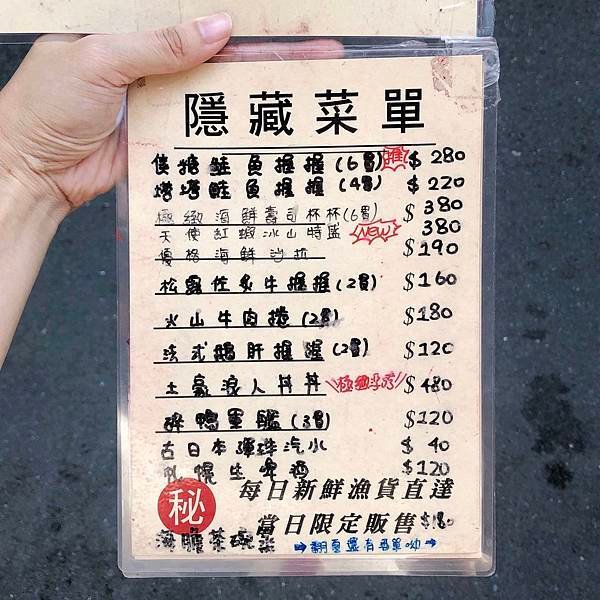 隱藏菜單
鮭魚握握(6貫) 推 $280
塔塔鮭魚握握(4貫) $220
極緻海鮮壽司杯杯(6貫) $380
天使紅蝦冰山特盛 NEW 380
優格海鮮沙拉 $190
松露佐炙牛握握(2貫) $160
火山牛肉捲(2貫) $180
法式鵝肝握握(2貫) $120
土豪浪人丼丼 $480
鴨軍艦(3貫) $120
古日本彈珠汽水 $40
生啤酒 $120
秘
每日新鮮漁貨直達
當日限定販售
海膽茶碗蒸 $180
➡翻頁還有菜單呦➡